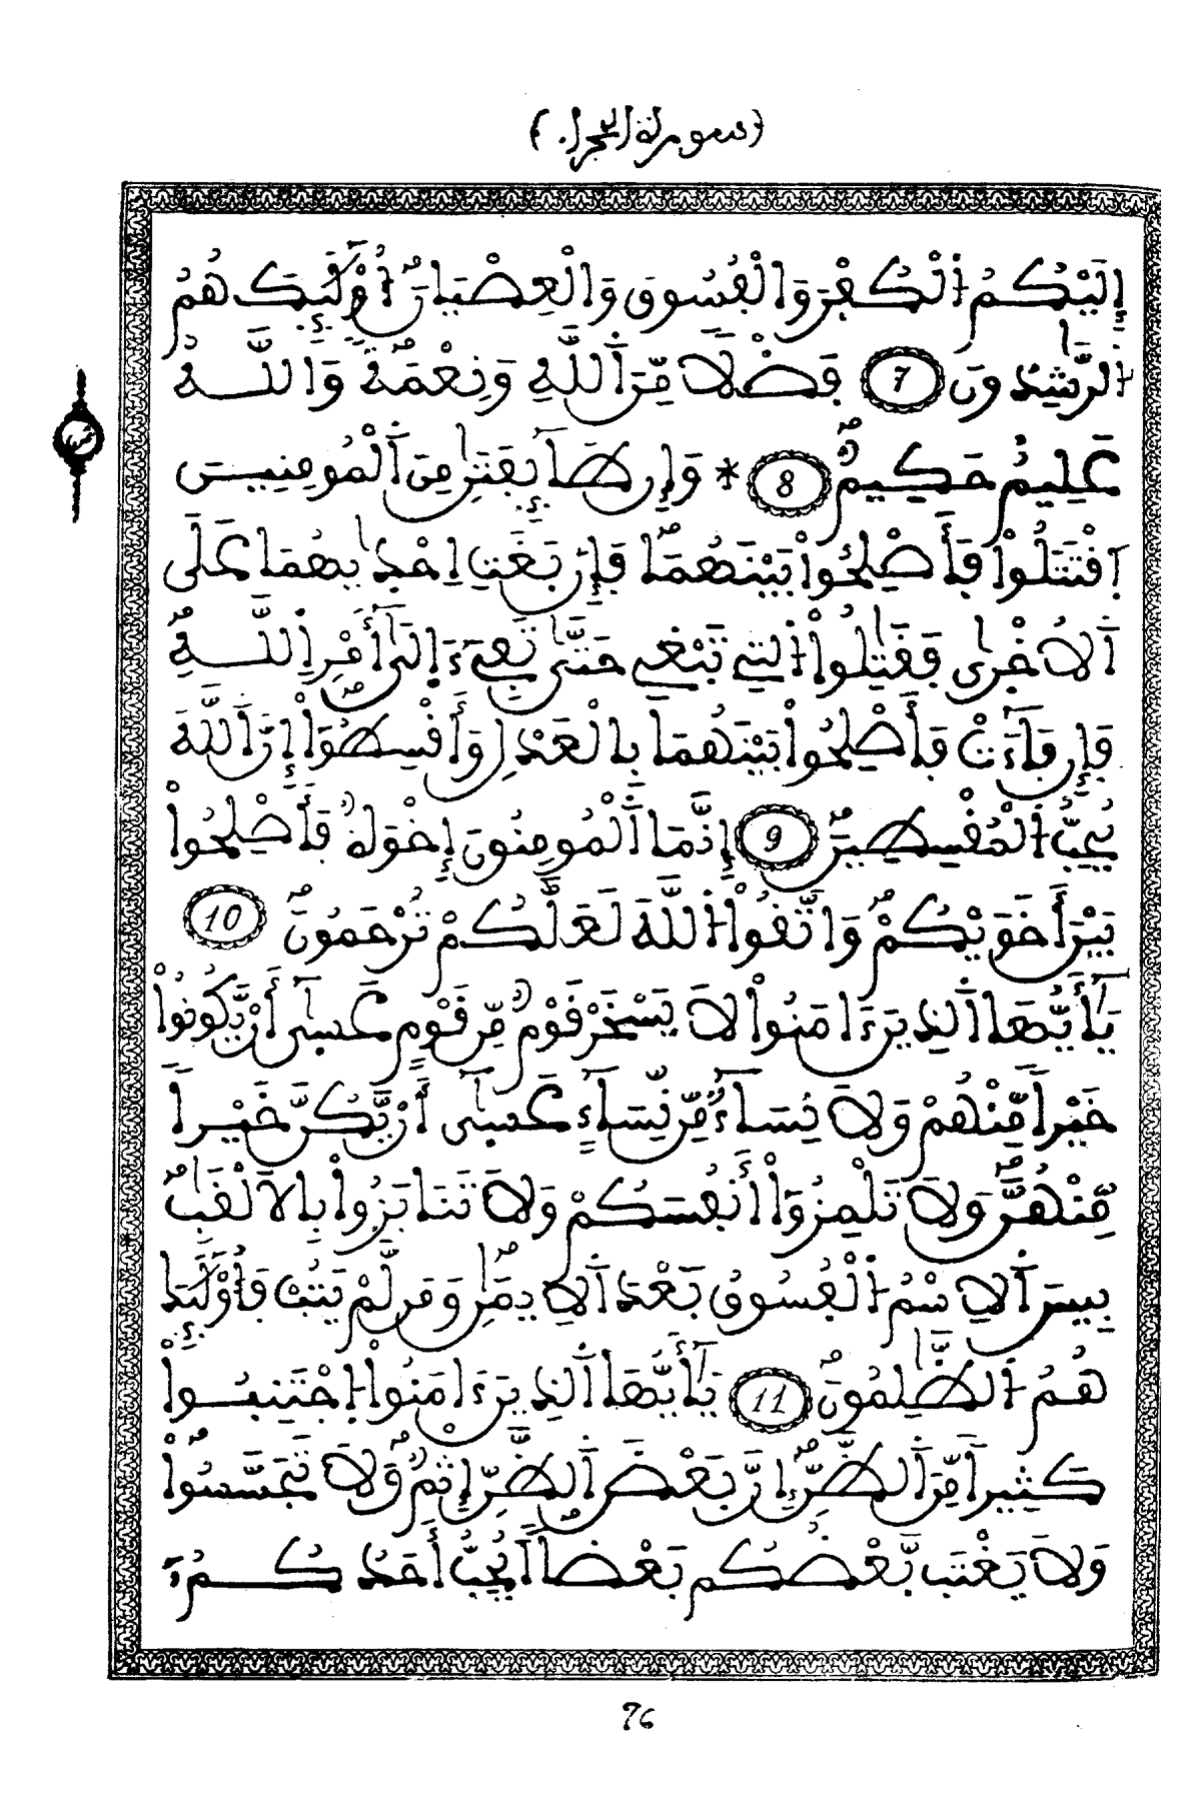 (سورة الحجرات)
إِلَيْكُمُ اُلْكُفْرَ وَالْفُسُوقَ وَالْعِصْيَانَ أُوْلَٰٓئِكَ هُمُ
اُلرَّٰشِدُونَ 7 فَضْلًا مِّنَ اَللَّهِ وَنِعْمَةً وَاللَّهُ
عَلِيمٌ حَكِيمٌ 8 * وَإِن طَآئِفَتَٰنِ مِنَ اَلْمُومِنِينَ
اَقْتَتَلُواْ فَأَصْلِحُواْ بَيْنَهُمَا فَإِنۢ بَغَتِ اِحْدَىٰهُمَا عَلَى
اَلُاخْرَىٰ فَقَٰتِلُواْ اُلتِي تَبْغِي حَتَّىٰ تَفِيٓءَ اِلَىٰٓ أَمْرِ اِللَّهِ
فَإِن فَآءَتْ فَأَصْلِحُواْ بَيْنَهُمَا بِالْعَدْلِ وَأَقْسِطُوٓاْ إِنَّ اَللَّهَ
يُحِبُّ اُلْمُقْسِطِينَ 9 إِنَّمَا اَلْمُومِنُونَ إِخْوَةٌ فَأَصْلِحُواْ
بَيْنَ أَخَوَيْكُمْ وَاتَّقُواْ اُللَّهَ لَعَلَّكُمْ تُرْحَمُونَ 10
يَٰٓأَيُّهَا اَلذِينَ ءَامَنُواْ لَا يَسْخَرْ قَوْمٌ مِّن قَوْمٍ عَسَىٰٓ أَنْ يَّكُونُواْ
خَيْراً مِّنْهُمْ وَلَا نِسَآءٌ مِّن نِّسَآءٍ عَسَىٰٓ أَنْ يَّكُنَّ خَيْراً
مِّنْهُنَّ وَلَا تَلْمِزُوٓاْ أَنفُسَكُمْ وَلَا تَنَابَزُواْ بِالَالْقَٰبِ
بِيسَ اَلِاسْمُ اُلْفُسُوقُ بَعْدَ اَلِايمَٰنِ وَمَن لَّمْ يَتُبْ فَأُوْلَٰٓئِكَ
هُمُ اُلظَّٰلِمُونَ 11 يَٰٓأَيُّهَا اَلذِينَ ءَامَنُواْ اُجْتَنِبُواْ
كَثِيراً مِّنَ اَلظَّنِّ إِنَّ بَعْضَ اَلظَّنِّ إِثْمٌ وَلَا تَجَسَّسُواْ
وَلَا يَغْتَب بَّعْضُكُم بَعْضاً اَيُحِبُّ أَحَدُكُمُۥٓ
76